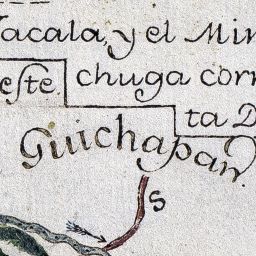 Jacala, y el Min
este chuga corr
ta D
Guichapan.
S